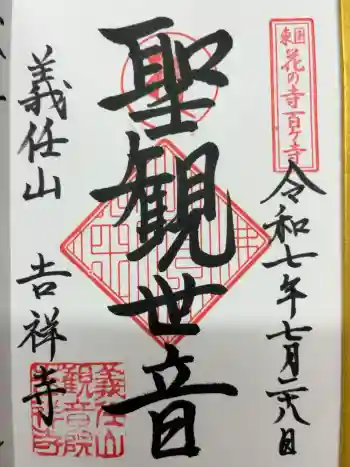 東国花の寺百ヶ寺
令和七年七月二六日
聖観世音
義任山 吉祥寺
義任山
観音院
吉祥寺